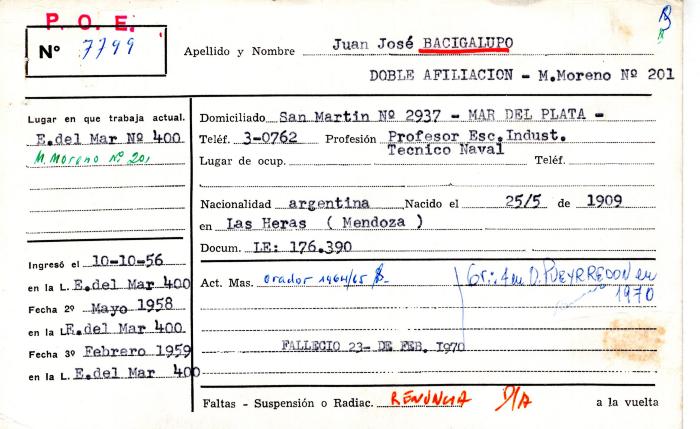 P. O. E.
Nº 7799
Apellido y Nombre Juan José BACIGALUPO
DOBLE AFILIACION - M.Moreno Nº 201
Lugar en que trabaja actual.
E.del Mar Nº 400
M. Moreno Nº 201
Domiciliado San Martin Nº 2937 - MAR DEL PLATA -
Teléf. 3-0762 Profesión Profesor Esc.Indust.
Tecnico Naval
Lugar de ocup. Teléf.
Nacionalidad argentina Nacido el 25/5 de 1909
en Las Heras ( Mendoza )
Docum. LE: 176.390
Ingresó el 10-10-56
en la L. E.del Mar 400
Fecha 2º Mayo 1958
en la L. E.del Mar 400
Fecha 3º Febrero 1959
en la L. E.del Mar 400
Act. Mas. orador 1964/65
D. PUEYRREDON en
1970
FALLECIO 23- DE FEB. 1970
Faltas - Suspensión o Radiac. RENUNCIA a la vuelta